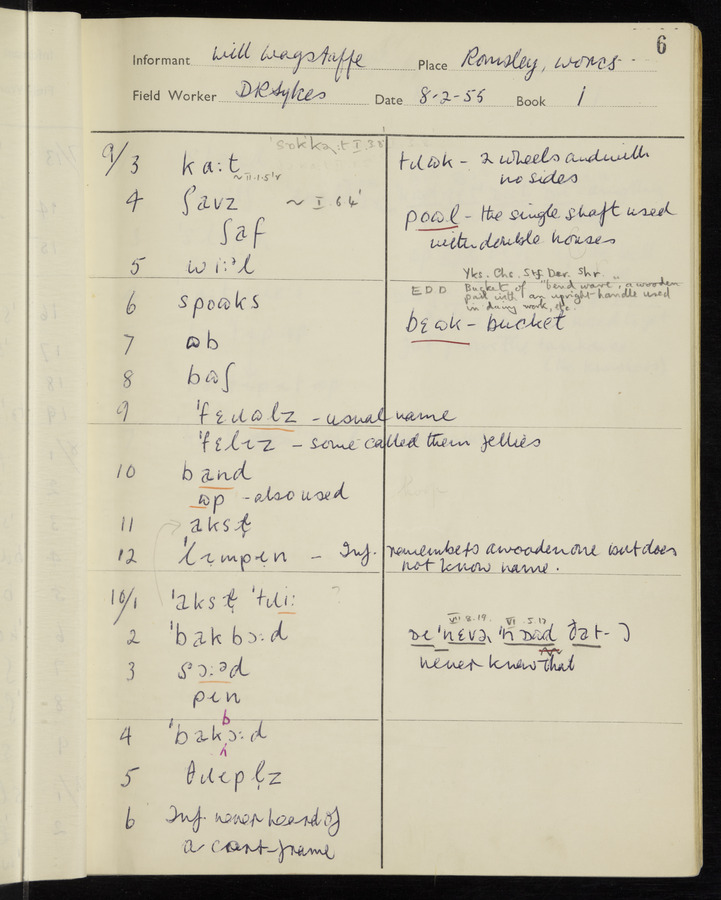 6
Informant Will Wagstaffe Place Romsley, Worcs.
Field Worker D R Sykes Date 8-2-55 Book 1
9/3 ka:t
~ II.1.5'r
4 ʃavz ~ I 6 4'
ʃaf
5 wi:ᵊl
6 spoɷks
7 ɷb
8 bɷʃ
9 - usual name
- some called them fellies
10 band
ɷp - also used
11
12 'lɪmpɪn - Inf. remembers a wooden one but does
not know name.
10/1 ?
2 'bakbɔ:d
3 sɔ:ᵊd
pɪn
4 'bakɔ:d
b
5
6 Inf. never heard of
a cart-frame
- 2 wheels and with
no sides
pɔɷl - the single shaft used
with double horses
Yks. Chs. Stf. Der. Shr.
EDD Bucket of "bend ware", a wooden
pail with an upright handle used
in dairy work, etc.
bɛɷk - bucket
VI 8.19. VI .5.17
never knew that